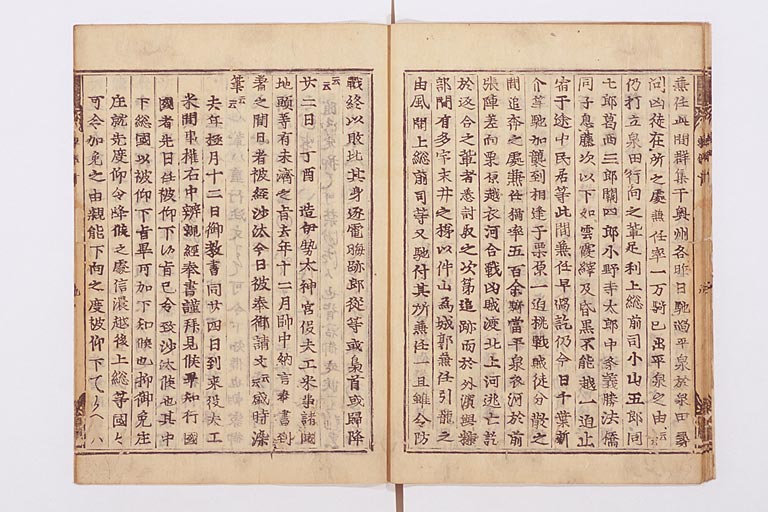 兼任此間群集于奥州各昨日馳過平泉於泉田尋
問凶徒在所之處兼任率一万騎已出平泉之由云云
仍打立泉田行向之輩足利上総前司小山五郎同
七郎葛西三郎関四郎小野寺太郎中条義勝法橋
同子息藤次以下如雲霞繹及昏黒不能越一迫止
宿于途中民居等此間兼任早過訖仍今日千葉新
介等馳加襲到相逢于栗原一迫挑戦賊徒分散之
間追奔之處兼任猶率五百余騎當平泉衣河於前
張陣差向栗原越衣河合戦凶賊渡北上河逃亡訖
於返合之輩者悉討取之次第追跡而於外濱與糠
部間有多宇末井之梯以件山為城郭兼任引籠之
由風聞上総前司等又馳付其所兼任一旦雖令防
戦終以敗北其身逐電晦跡郎従等或梟首或歸降云云
廿二日丁酉 造伊勢太神宮役夫工米事諸國
地頭等有未濟之旨去年十二月帥中納言奉書到
着之間日者被經沙汰今日被奉御請文云云盛時染
筆云云
去年極月十二日御教書同廿四日到来役夫工
米間事權右中辨親經奉書謹拝見候畢知行國
國者先日任被仰下候旨已令致沙汰候也其中
下総國以被仰下旨畢可加下知候也抑御免庄
庄就先度仰令降候之處信濃越後上総等國々
可令加免之由親能下向之度被仰下て候へハ